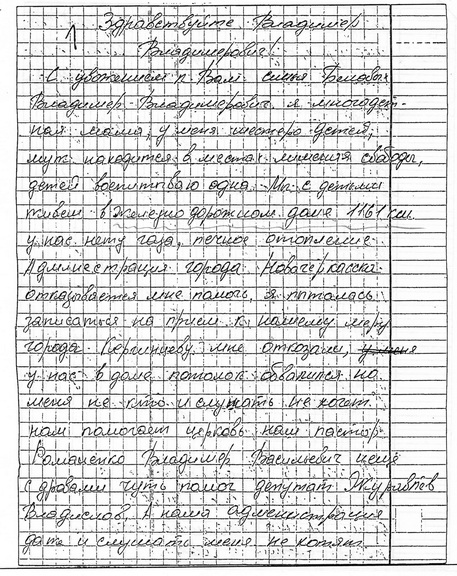 1 Здравствуйте Владимер
Владимерович!
С уважением к Вам семья
Владимер Владимерович я многодет-
ная мама, у меня шестеро детей,
муж находится в местах лишения свободы,
детей воспитываю одна. Мы с детьми
живем в железнодорожном доме 1161 км.
у нас нету газа, печное отопление
Администрация города Новочеркасска
отказывается мне помочь, я пыталась
записаться на прием к нашему меру
города мне отказали, у меня
у нас в доме потолок обвалился на
меня не кто и слушать не хочет
нам помогает церковь наш пастор
Романенко Владимер Васильевич ищие
с дровами чуть помог депутат Журавлев
Владислов. А наша администрация
даже и слушать меня не хотят